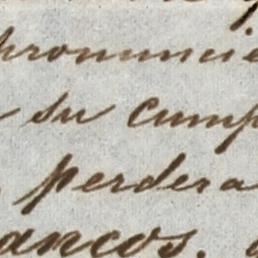 pronuncie
su cump
perdera
ancos.